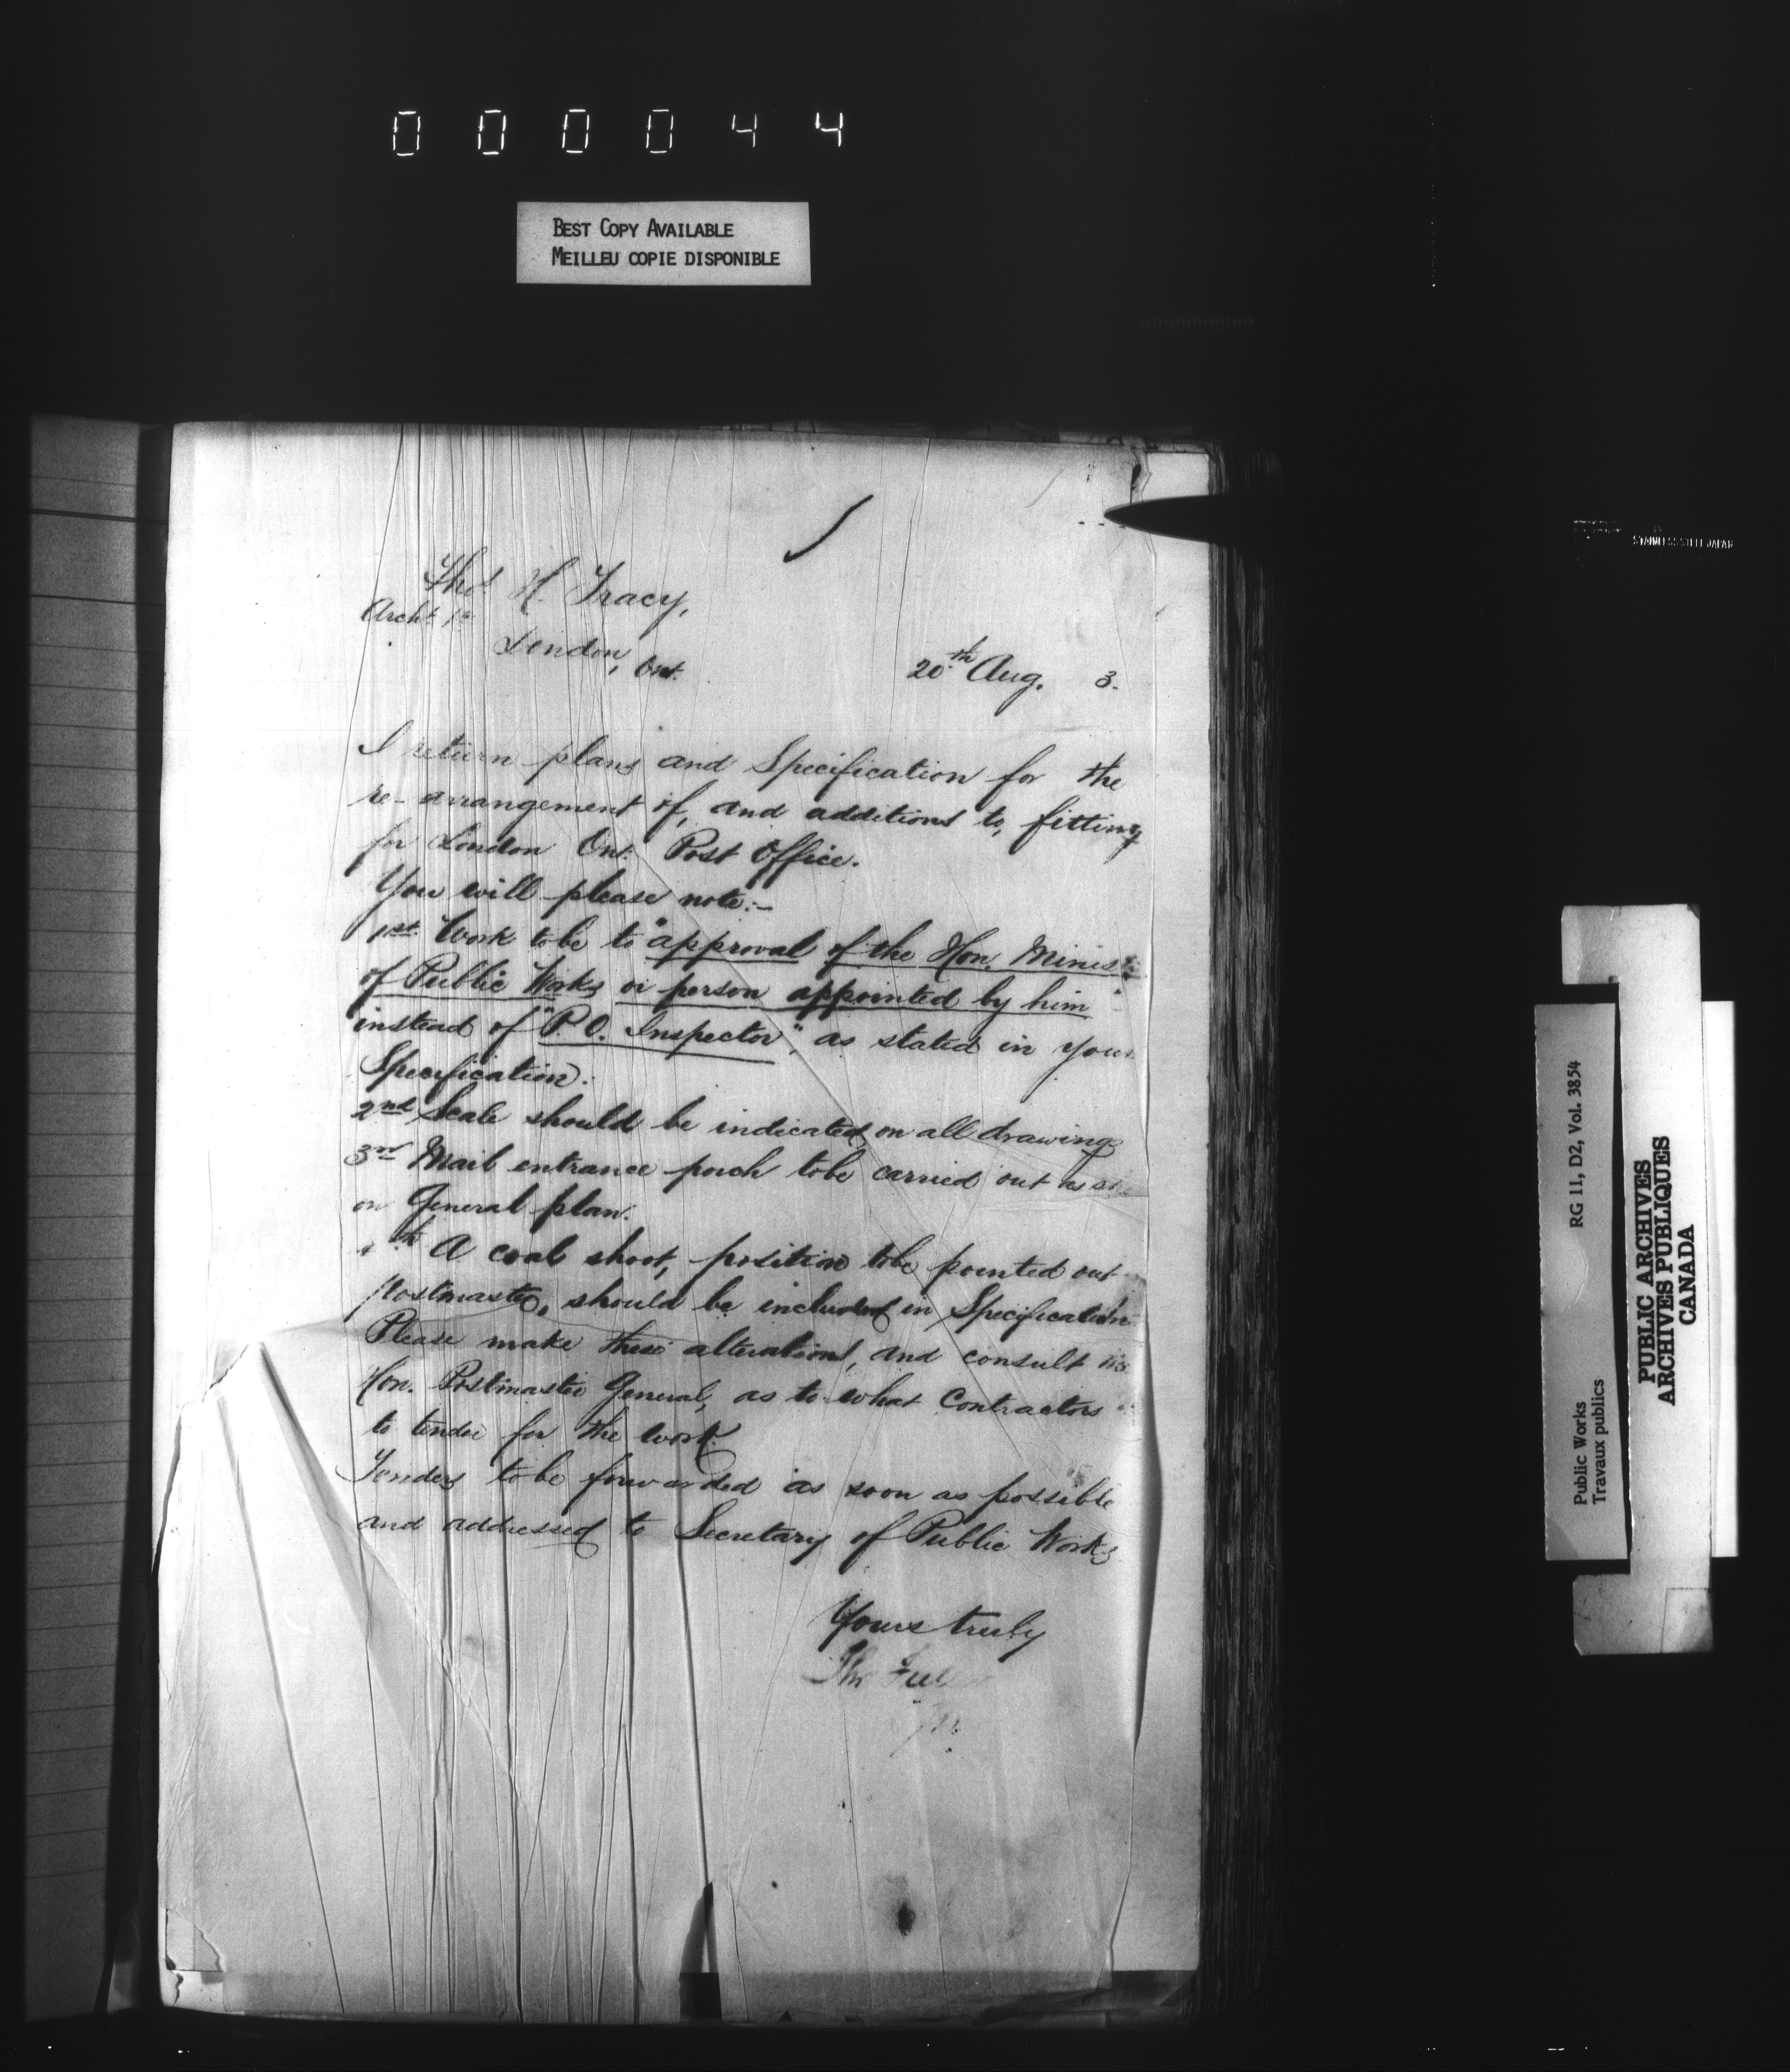 000044
BEST COPY AVAILABLE
MEILLEU COPIE DISPONIBLE
Thos. H. Tracy,
Archt.
London, Ont.
20th Aug. 3.
I return plans and Specification for the
re-arrangement of, and additions to, fittings
for London Ont. Post Office.
You will please note:-
1st. Work to be to "approval of the Hon. Minis
of Public Works or person appointed by him"
instead of "P. O. Inspector", as stated in your
Specification.
2nd Scale should be indicated on all drawings
3rd Mail entrance porch to be carried out as
on General plan.
4th A coal shoot, position to be pointed out
Postmaster, should be included in Specification
Please make these alterations, and consult
Hon. Postmaster General, as to what Contractors
to tender for the work.
Tenders to be forwarded as soon as possible
and addressed to Secretary of Public Works
Yours truly
Thos Ful
STAINLESS STEEL JAPAN
RG 11, D2, Vol. 3854
Public Works
Travaux publics
PUBLIC ARCHIVES
ARCHIVES PUBLIQUES
CANADA